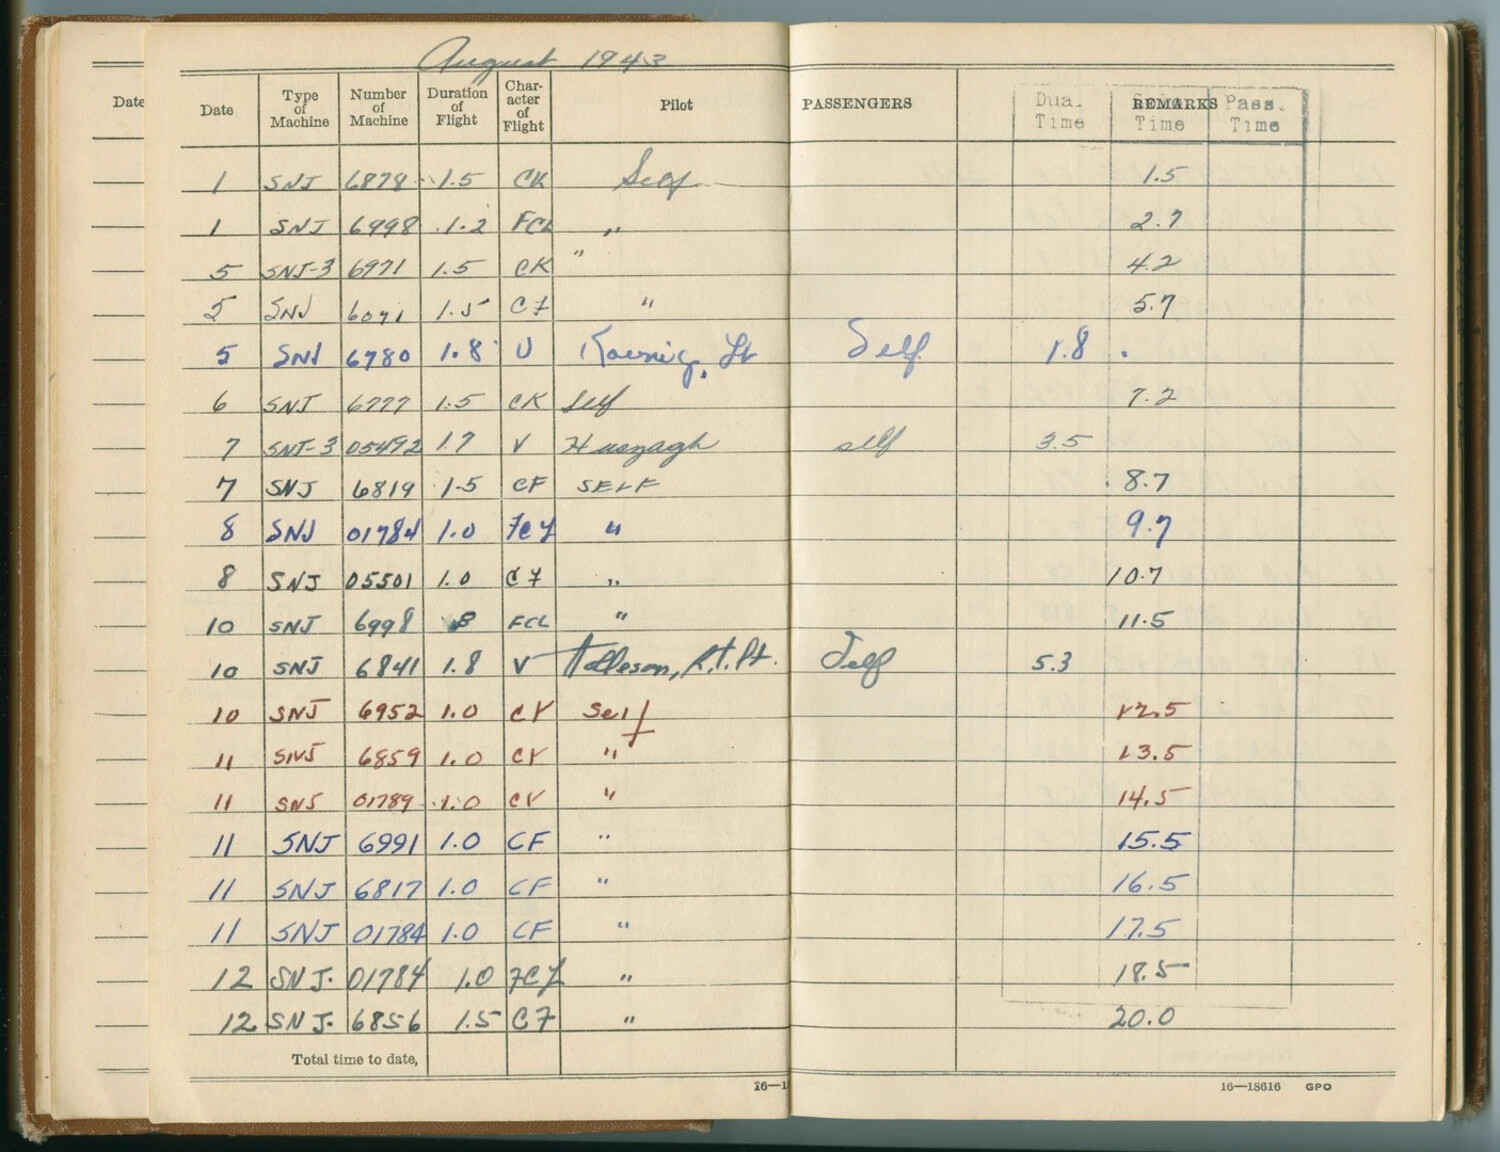 August 1943
Date
Date Type of Machine Number of Machine Duration of Flight Character of Flight Pilot PASSENGERS Dua. Time REMARKS Time Pass. Time
1 SNJ 6878 1.5 CK Self 1.5
1 SNJ 6998 1.2 FCL " 2.7
5 SNJ-3 6971 1.5 CK " 4.2
5 SNJ 6071 1.5 CF " 5.7
5 SNJ 6780 1.8 U Koenig, Lt Self 1.8
6 SNJ 6777 1.5 CK Self 7.2
7 SNJ-3 05492 1.7 V self 3.5
7 SNJ 6819 1.5 CF SELF 8.7
8 SNJ 01784 1.0 " 9.7
8 SNJ 05501 1.0 CF " 10.7
10 SNJ 6998 .8 FCL " 11.5
10 SNJ 6841 1.8 V Self 5.3
10 SNJ 6952 1.0 CY Self 12.5
11 SNJ 6859 1.0 CY " 13.5
11 SNJ 01789 1.0 CY " 14.5
11 SNJ 6991 1.0 CF " 15.5
11 SNJ 6817 1.0 CF " 16.5
11 SNJ 01784 1.0 CF " 17.5
12 SNJ. 01784 1.0 " 18.5
12 SNJ. 6856 1.5 CF " 20.0
Total time to date,
16—1
16—18616 GPO